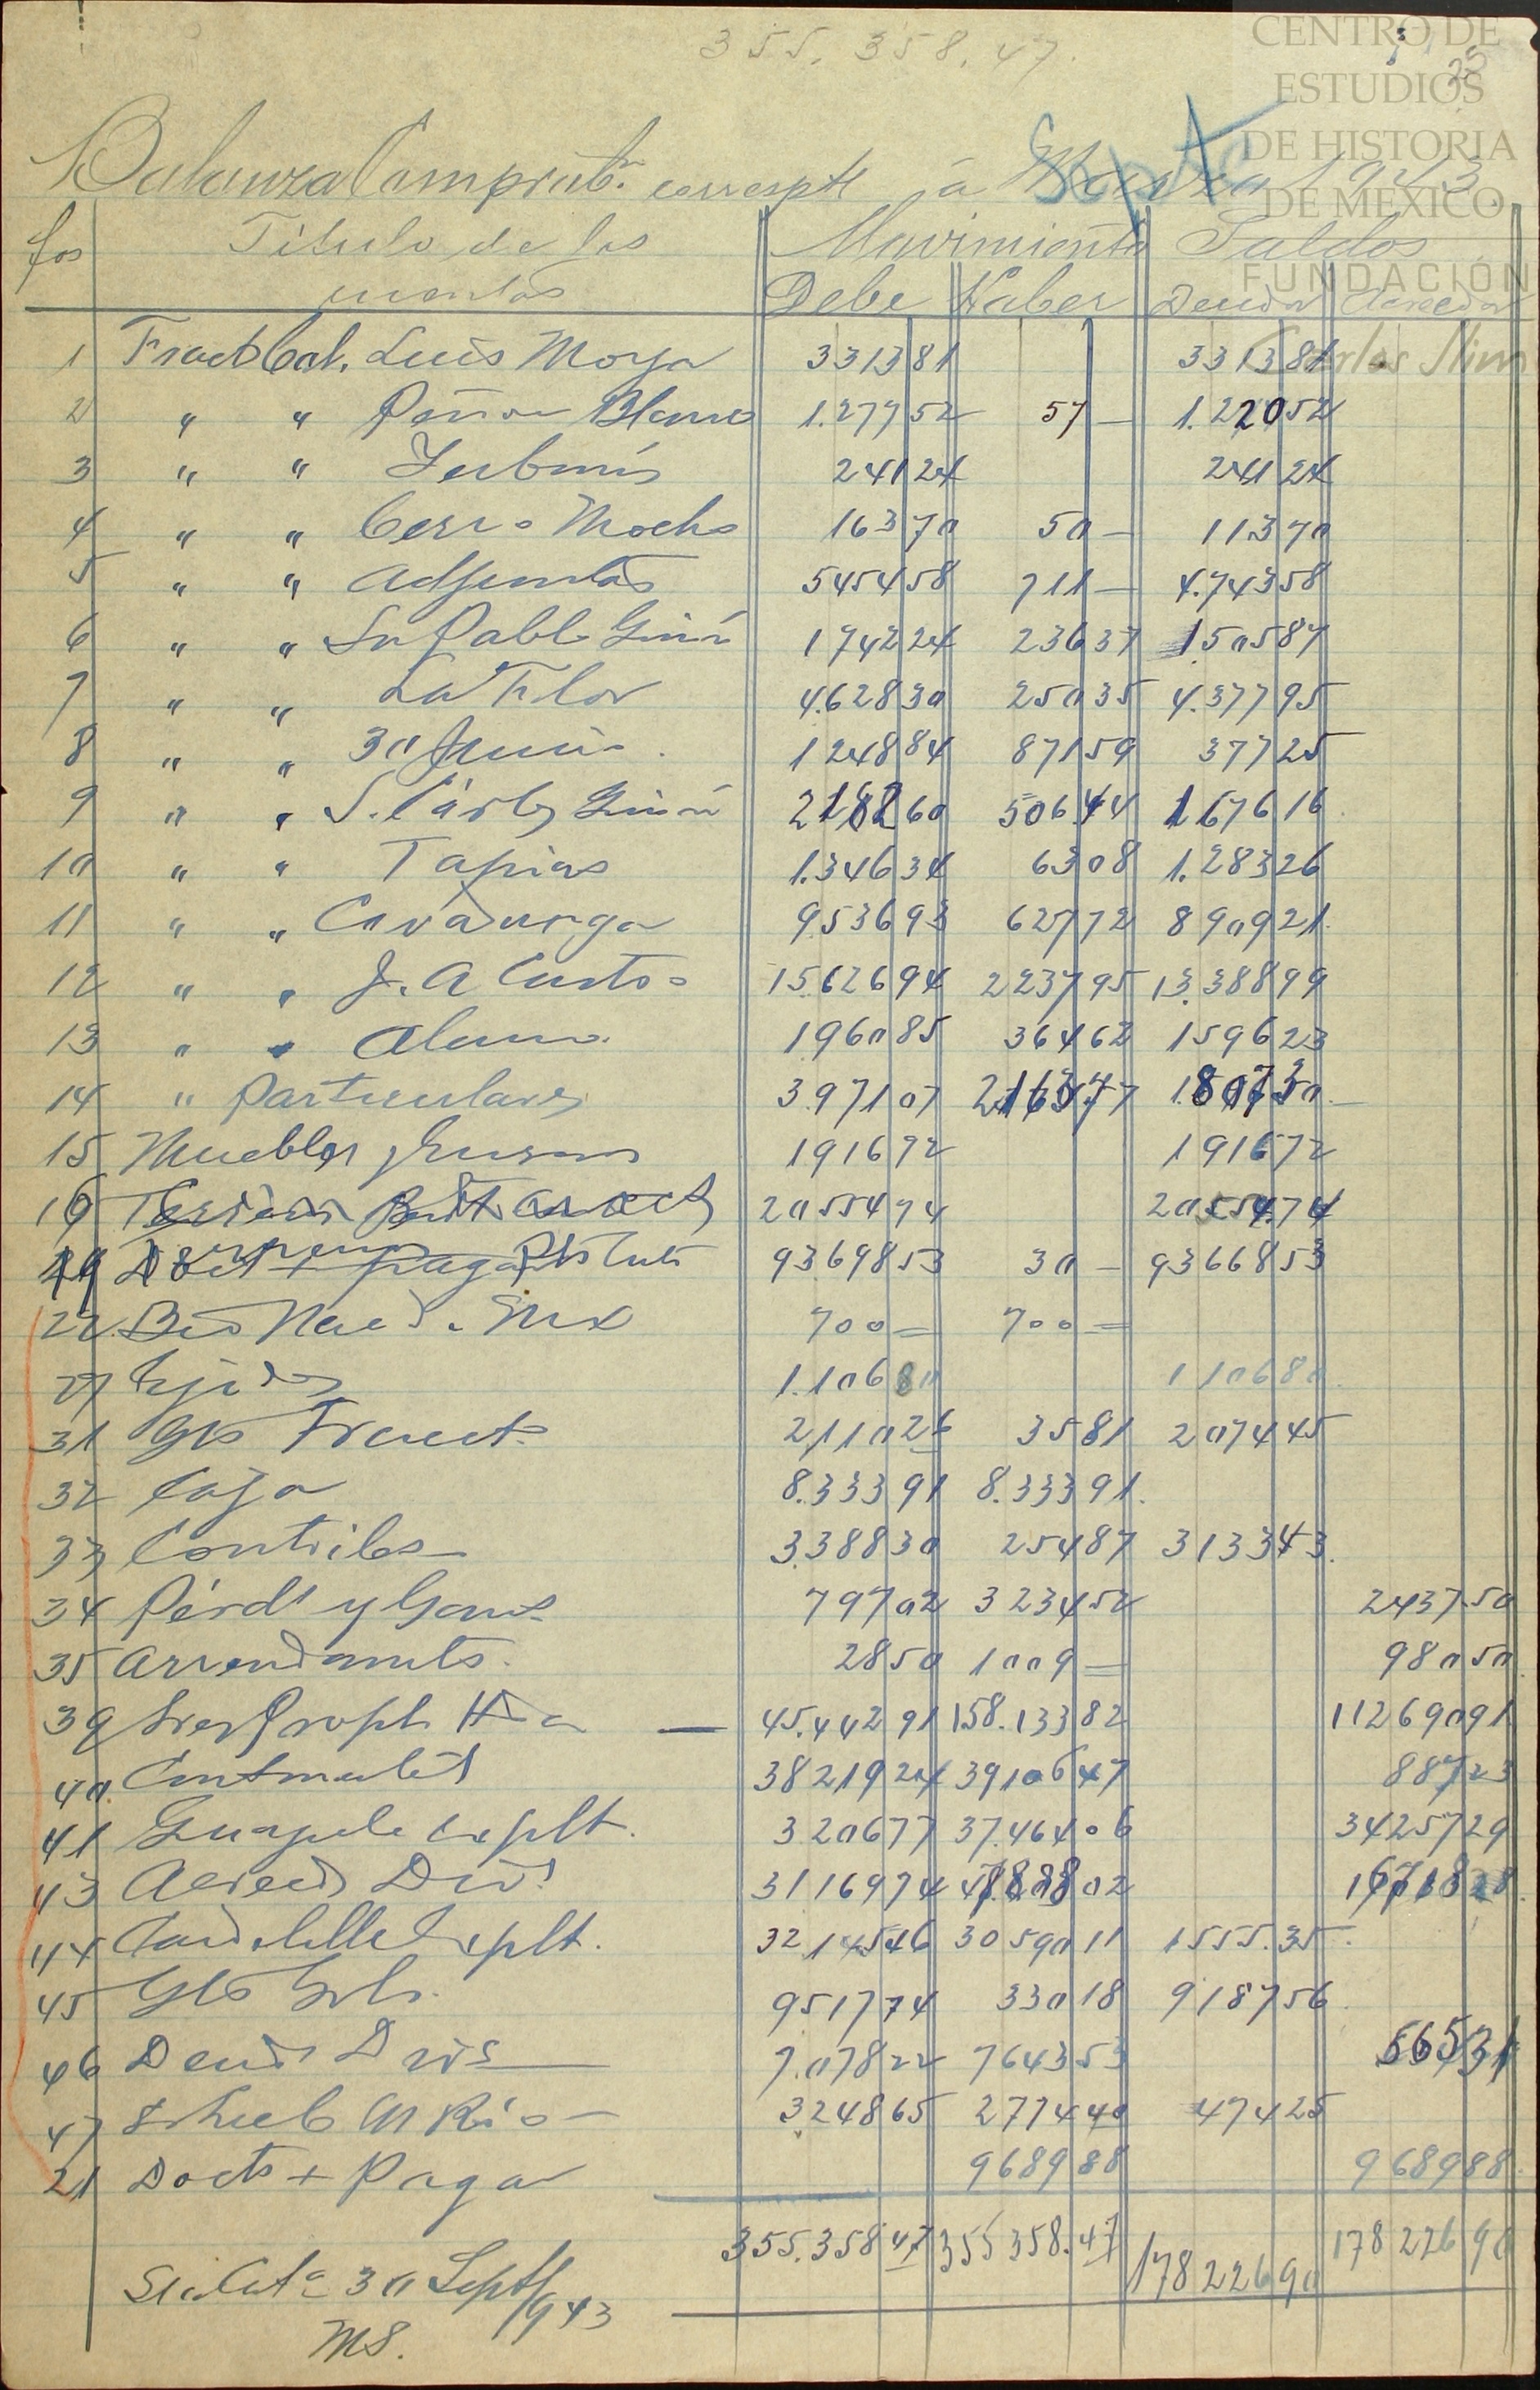 355,358.47.
CENTRO DE
ESTUDIOS
DE HISTORIA
DE MÉXICO
FUNDACIÓN
Carlos Slim
Balanza Comprobn. correspt á Sept 1943.
fos Título de las cuentas Movimiento Saldos
Debe Haber Deudor Acreedor
1 Fract Col. Luis Moya 3313 81 3313 81
2 " " Peñon Blanco 1.277 52 57 — 1.220 52
3 " " 241 24 241 24
4 " " Cerro Mocho 163 70 50 — 113 70
5 " " Adjuntas 5454 58 711 — 4.743 58
6 " " Sn Pablo 1742 24 236 37 1505 87
7 " " La Flor 4.628 30 250 35 4.377 95
8 " " 30 Junio 1248 84 871 59 377 25
9 " " S. Cárlos 2182 60 506 44 1676 16
10 " " Tapias 1.346 34 63 08 1.283 26
11 " " Covadonga 9536 93 627 72 8909 21
12 " " J. A Castro 15626 94 2237 95 13.388 99
13 " " Alamo 1960 85 364 62 1596 23
14 " Particulares 3971 07 2163 77 1.807 30
15 Muebles 1916 72 1916 72
16 20554 74 20554 74
19 93698 53 30 — 93668 53
22 Bco Nac d. Mex 700 — 700 —
27 Ejidos 1.106 80 1106 80
31 Gts Fract. 2,110 26 35 81 2074 45
32 Caja 8.333 91 8.333 91
33 Contribs 3.388 30 254 87 3133 43
34 Pérds y Gans 797 02 3234 52 2437 50
35 Arrendamts. 28 50 1009 — 980 50
39 45.442 91 158.133 82 112690 91
40 38219 24 39106 47 887 23
41 Guayule Explt. 3206 77 37.464 06 34257 29
43 Acreeds Divs 31169 74
44 Candelilla Explt. 32145 46 30590 11 1555.35
45 Gts Grls. 9517 74 330 18 9187 56
46 Deuds Divs 7.078 22 7643 53 565 31
47 3248 65 2774 40 474 25
21 Docts + Pagar 9689 88 9689 88
355.358 47 355 358.47 178226 90 178226 90
30 Sept/943
MS.